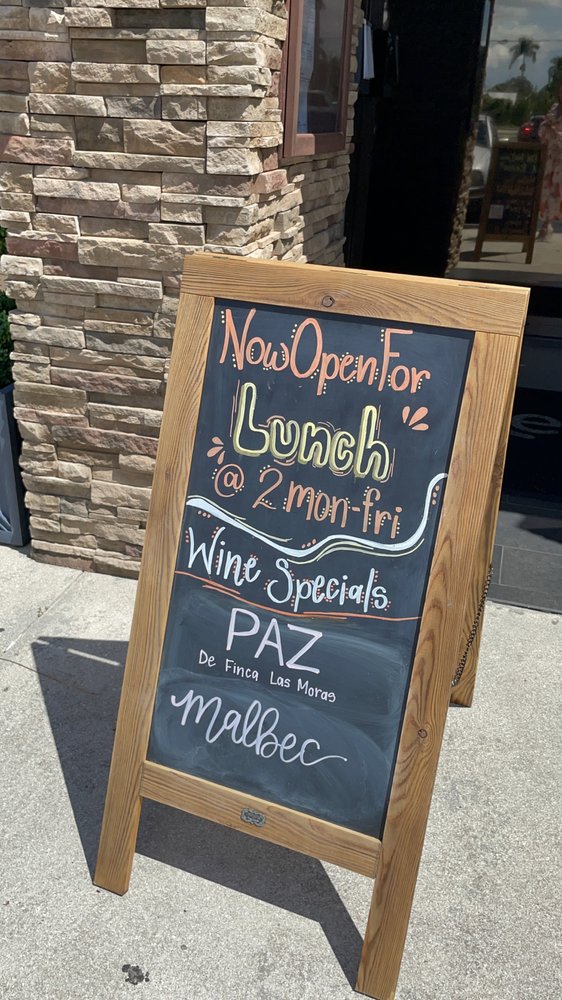 Now Open For
Lunch
@ 2 mon-fri
Wine Specials
PAZ
De Finca Las Moras
malbec